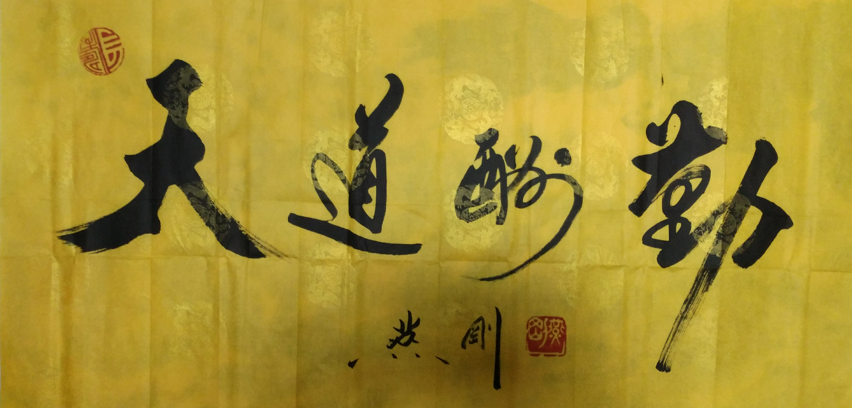 天道酬勤
燕刚